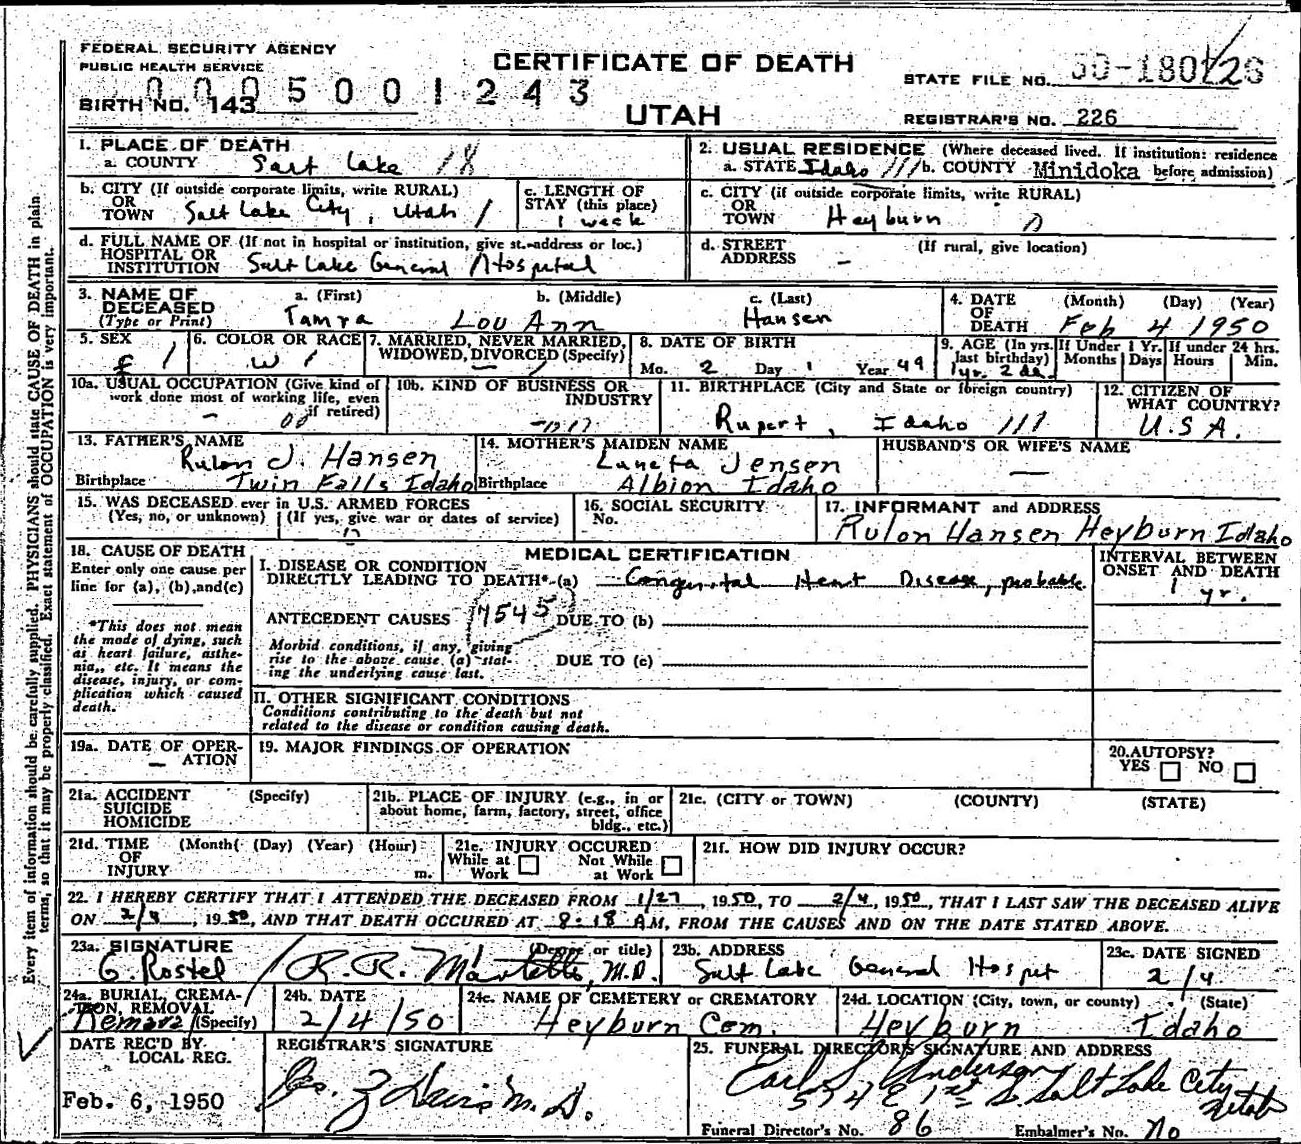 FEDERAL SECURITY AGENCY
PUBLIC HEALTH SERVICE
CERTIFICATE OF DEATH
STATE FILE NO.
0005001243
BIRTH NO. 143
UTAH
REGISTRAR'S NO. 226
1. PLACE OF DEATH
a. COUNTY Salt Lake 18
2. USUAL RESIDENCE (Where deceased lived. If institution: residence
a. STATE Idaho 111 b. COUNTY Minidoka before admission)
b. CITY (If outside corporate limits, write RURAL)
OR
TOWN Salt Lake City, Utah 1
c. LENGTH OF
STAY (this place)
1 week
c. CITY (if outside corporate limits, write RURAL)
OR
TOWN Heyburn 0
d. FULL NAME OF (If not in hospital or institution, give st. address or loc.)
HOSPITAL OR
INSTITUTION Salt Lake General Hospital
d. STREET (If rural, give location)
ADDRESS -
3. NAME OF
DECEASED
(Type or Print)
a. (First) b. (Middle) c. (Last)
Tamra Lou Ann Hansen
4. DATE (Month) (Day) (Year)
OF
DEATH Feb 4 1950
5. SEX
F 1
6. COLOR OR RACE
W 1
7. MARRIED, NEVER MARRIED,
WIDOWED, DIVORCED (Specify)
8. DATE OF BIRTH
Mo. 2 Day 1 Year 49
9. AGE (In yrs.
last birthday)
1 yr. 2 da.
If Under 1 Yr.
Months Days
If under 24 hrs.
Hours Min.
10a. USUAL OCCUPATION (Give kind of
work done most of working life, even
if retired)
- 00
10b. KIND OF BUSINESS OR
INDUSTRY
11. BIRTHPLACE (City and State or foreign country)
Rupert, Idaho 111
12. CITIZEN OF
WHAT COUNTRY?
U.S.A.
13. FATHER'S NAME
Rulon J. Hansen
Birthplace Twin Falls Idaho
14. MOTHER'S MAIDEN NAME
Laneta Jensen
Birthplace Albion Idaho
HUSBAND'S OR WIFE'S NAME
—
15. WAS DECEASED ever in U.S. ARMED FORCES
(Yes, no, or unknown) (If yes, give war or dates of service)
16. SOCIAL SECURITY
No.
17. INFORMANT and ADDRESS
Rulon Hansen Heyburn Idaho
18. CAUSE OF DEATH
Enter only one cause per
line for (a), (b), and (c)
*This does not mean
the mode of dying, such
as heart failure, asthe-
nia,, etc. It means the
disease, injury, or com-
plication which caused
death.
MEDICAL CERTIFICATION
I. DISEASE OR CONDITION
DIRECTLY LEADING TO DEATH* (a) Congenital Heart Disease, probable
ANTECEDENT CAUSES 7545 DUE TO (b)
Morbid conditions, if any, giving
rise to the above cause (a) stat-
ing the underlying cause last.
DUE TO (c)
II. OTHER SIGNIFICANT CONDITIONS
Conditions contributing to the death but not
related to the disease or condition causing death.
INTERVAL BETWEEN
ONSET AND DEATH
1 yr.
19a. DATE OF OPER-
— ATION
19. MAJOR FINDINGS OF OPERATION
20. AUTOPSY?
YES NO
21a. ACCIDENT (Specify)
SUICIDE
HOMICIDE
21b. PLACE OF INJURY (e.g., in or
about home, farm, factory, street, office
bldg., etc.)
21c. (CITY or TOWN) (COUNTY) (STATE)
21d. TIME (Month( (Day) (Year) (Hour)
OF
INJURY m.
21e. INJURY OCCURED
While at Work Not While at Work
21f. HOW DID INJURY OCCUR?
22. I HEREBY CERTIFY THAT I ATTENDED THE DECEASED FROM 1/27, 1950, TO 2/4, 1950, THAT I LAST SAW THE DECEASED ALIVE
ON 2/4, 1950, AND THAT DEATH OCCURED AT 8:18 AM, FROM THE CAUSES AND ON THE DATE STATED ABOVE.
23a. SIGNATURE (Degree or title)
G. Rostel / R. R. M.D.
23b. ADDRESS
Salt Lake General Hospit
23c. DATE SIGNED
2/4
24a. BURIAL, CREMA-
TION, REMOVAL
Removal (Specify)
24b. DATE
2/4/50
24c. NAME OF CEMETERY or CREMATORY
Heyburn Cem.
24d. LOCATION (City, town, or county) (State)
Heyburn Idaho
DATE REC'D BY
LOCAL REG.
Feb. 6, 1950
REGISTRAR'S SIGNATURE
M. D.
25. FUNERAL DIRECTOR'S SIGNATURE AND ADDRESS
Earl S. Anderson
574 E 1st S. Salt Lake City
Utah
Funeral Director's No. 86 Embalmer's No. No
Every item of information should be carefully supplied. PHYSICIANS should state CAUSE OF DEATH in plain
terms, so that it may be properly classified. Exact statement of OCCUPATION is very important.